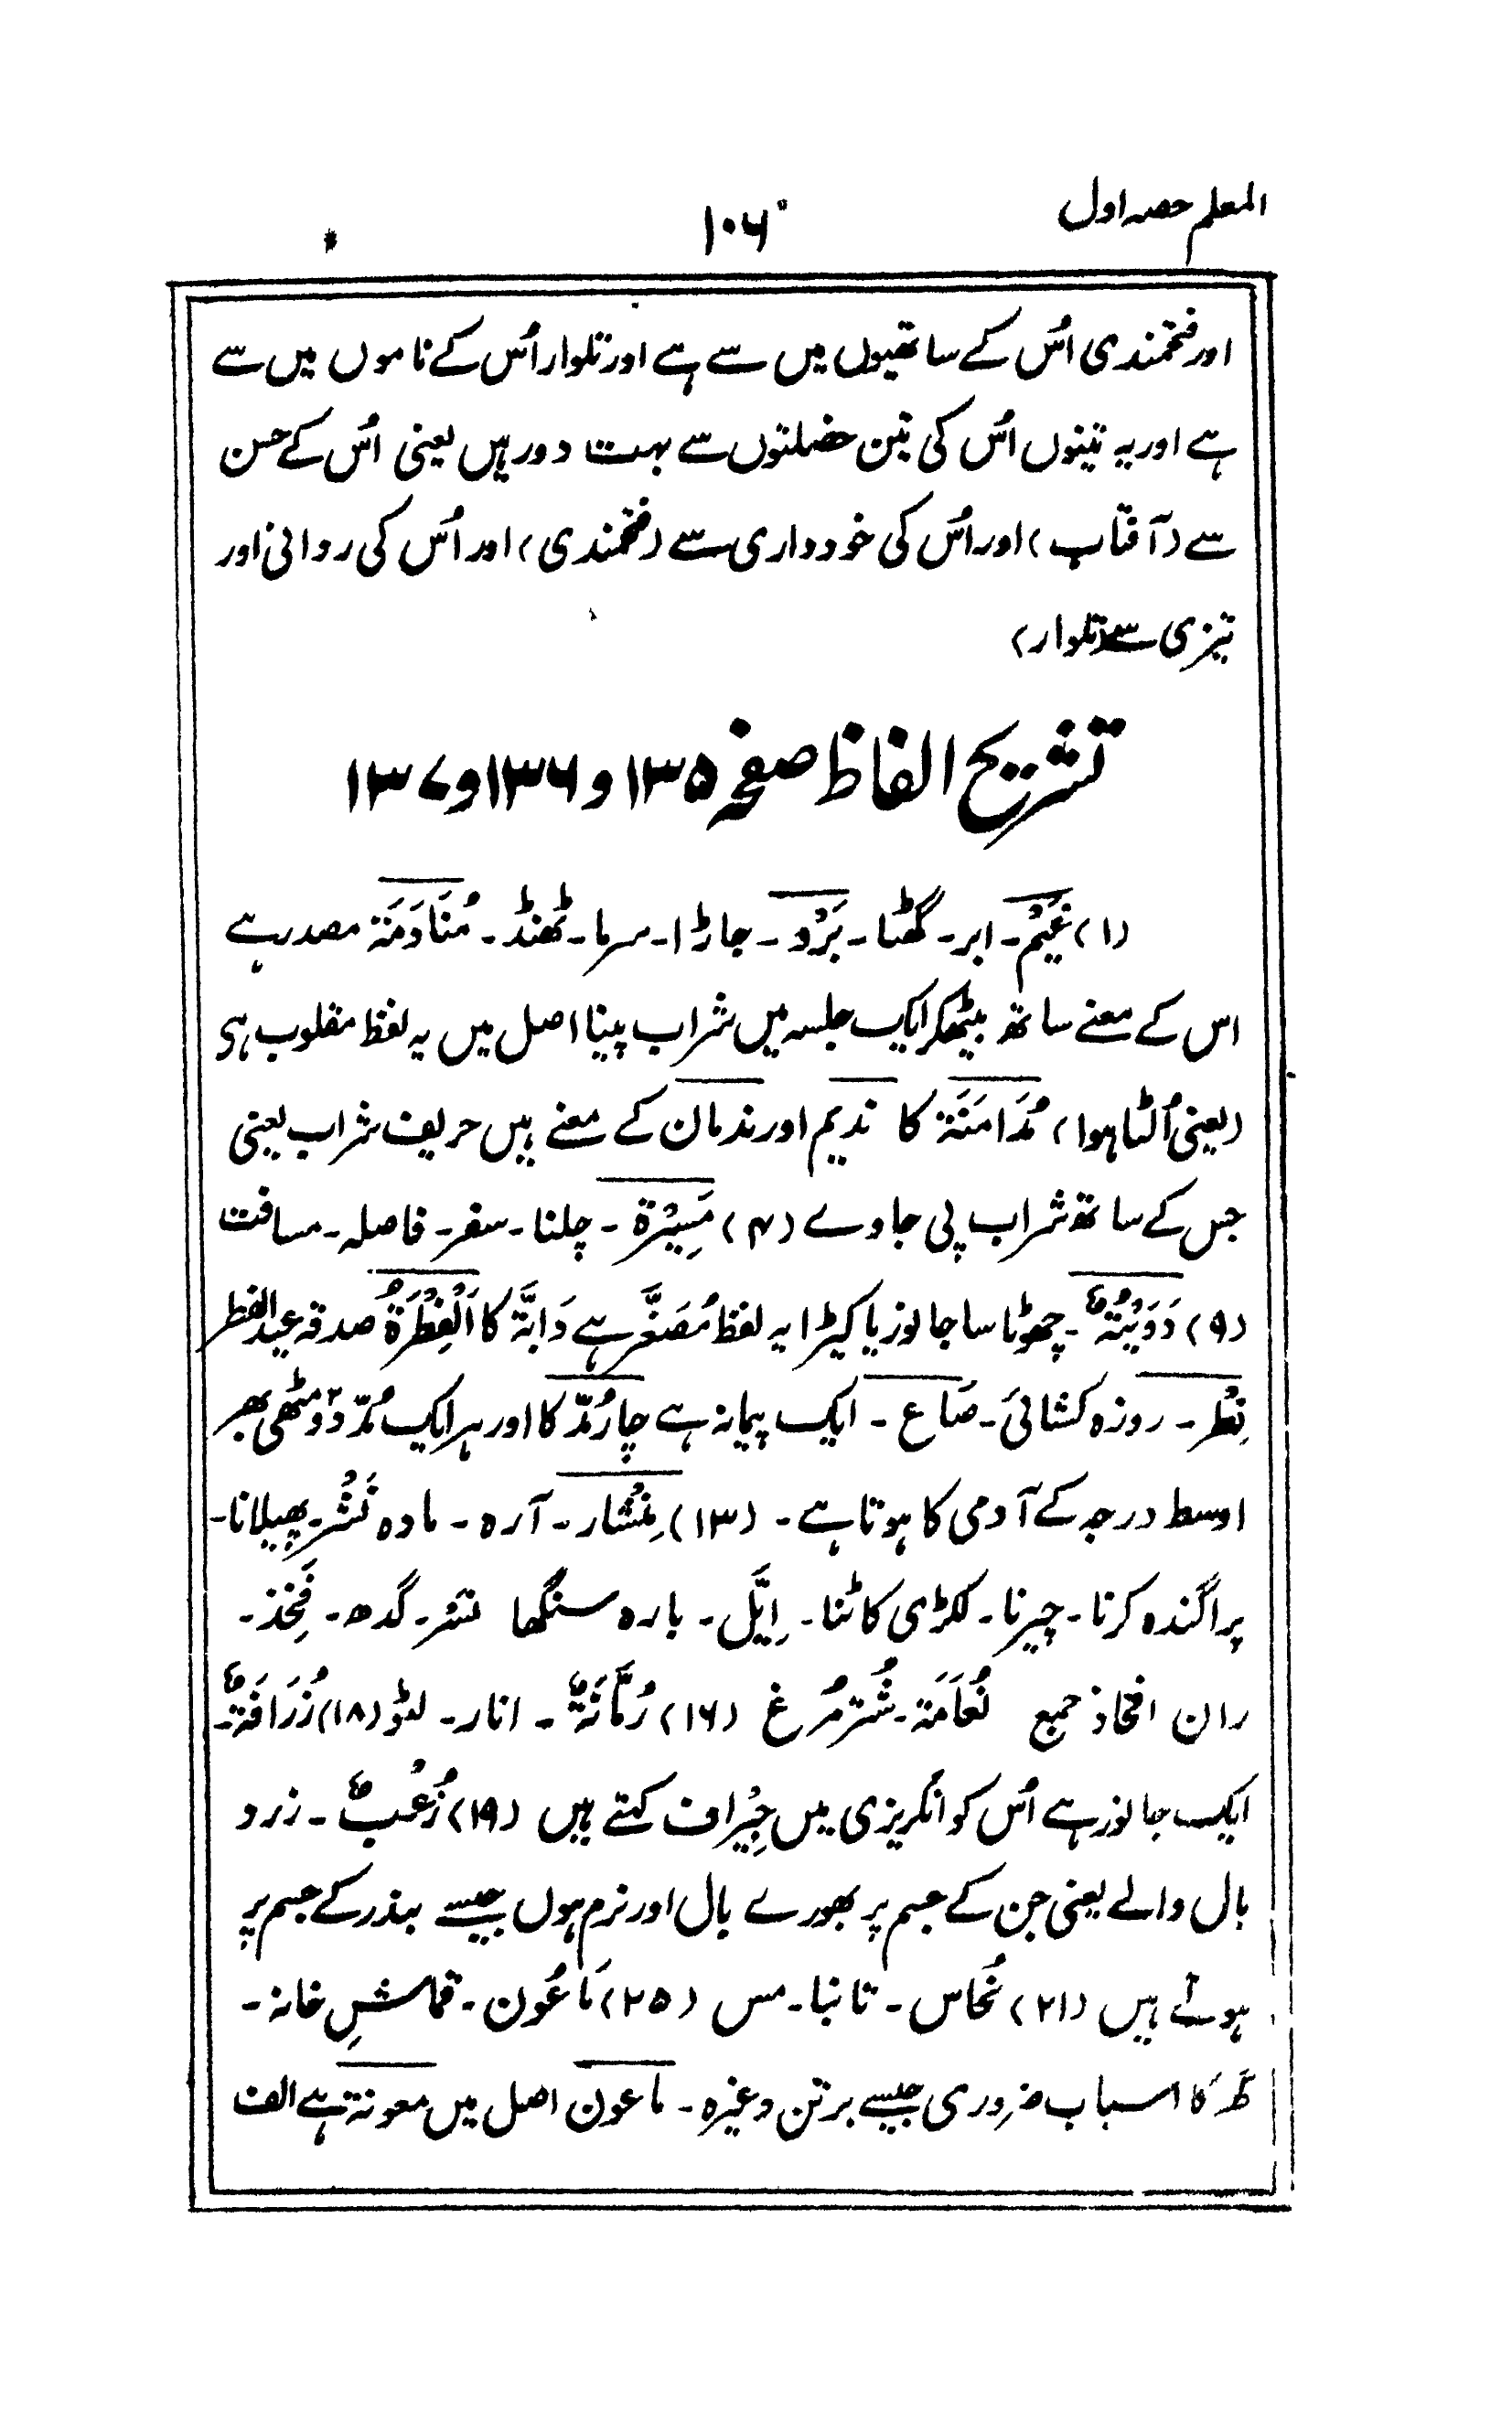 المعلم حصہ اول
۱۰۶
اور فتحمندی اُس کے ساتھیوں میں سے ہے اور تلوار اُس کے ناموں میں سے
ہے اور یہ تینوں اُس کی تین خصلتوں سے بہت دور ہیں یعنی اُس کے حسن
سے (آفتاب) اور اُس کی خودداری سے (فتحمندی) اور اُس کی روانی اور
تیزی سے (تلوار)
تشریح الفاظ صفحہ ۱۳۵ و ۱۳۶ و ۱۳۷
(۱) غَیْم۔ ابر۔ گھٹا۔ بَرْد۔ جاڑا۔ سرما۔ ٹھنڈ۔ مُنَادَمَۃ مصدر ہے
اس کے معنے ساتھ بیٹھکر ایک جلسہ میں شراب پینا اصل میں یہ لفظ مقلوب ہی
(یعنی اُلٹا ہوا) مُدَامَنَۃ کا ندیم اور ندمان کے معنے ہیں حریف شراب یعنی
جس کے ساتھ شراب پی جاوے (۴) مَسِیْرَۃ۔ چلنا۔ سفر۔ فاصلہ۔ مسافت
(۹) دُوَیْبَۃٌ۔ چھوٹا سا جانور یا کیڑا یہ لفظ مُصَغَّر ہے دَابَّۃ کا اَلْفِطْرَۃُ صدقہ عید الفطر
فِطْر۔ روزہ کشائی۔ صَاع۔ ایک پیمانہ ہے چار مُدّ کا اور ہر ایک مُدّ دو۲ مٹھی بھر
اوسط درجہ کے آدمی کا ہوتا ہے۔ (۱۳) مِنْشَار۔ آرہ۔ مادہ نَشْر۔ پھیلانا۔
پراگندہ کرنا۔ چیرنا۔ لکڑی کاٹنا۔ اِیَّل۔ بارہ سنگھا نسر۔ گدھ۔ فَخِذ۔
ران افخاذ جمع نَعَامَۃ۔ شُتر مُرغ (۱۶) رُمَّانَۃٌ۔ انار۔ لٹو (۱۸) زُرَافَۃٌ۔
ایک جانور ہے اُس کو انگریزی میں جِیْراف کہتے ہیں (۱۹) زُغْبٌ۔ زرد
بال والے یعنی جن کے جسم پر بھورے بال اور نرم ہوں جیسے بندر کے جسم پر
ہوتے ہیں (۲۱) نُحَاس۔ تانبا۔ مس (۲۵) مَاعُون۔ قماشِ خانہ۔
گھر کا اسباب ضروری جیسے برتن وغیرہ۔ ماعون اصل میں معونۃ ہے الف